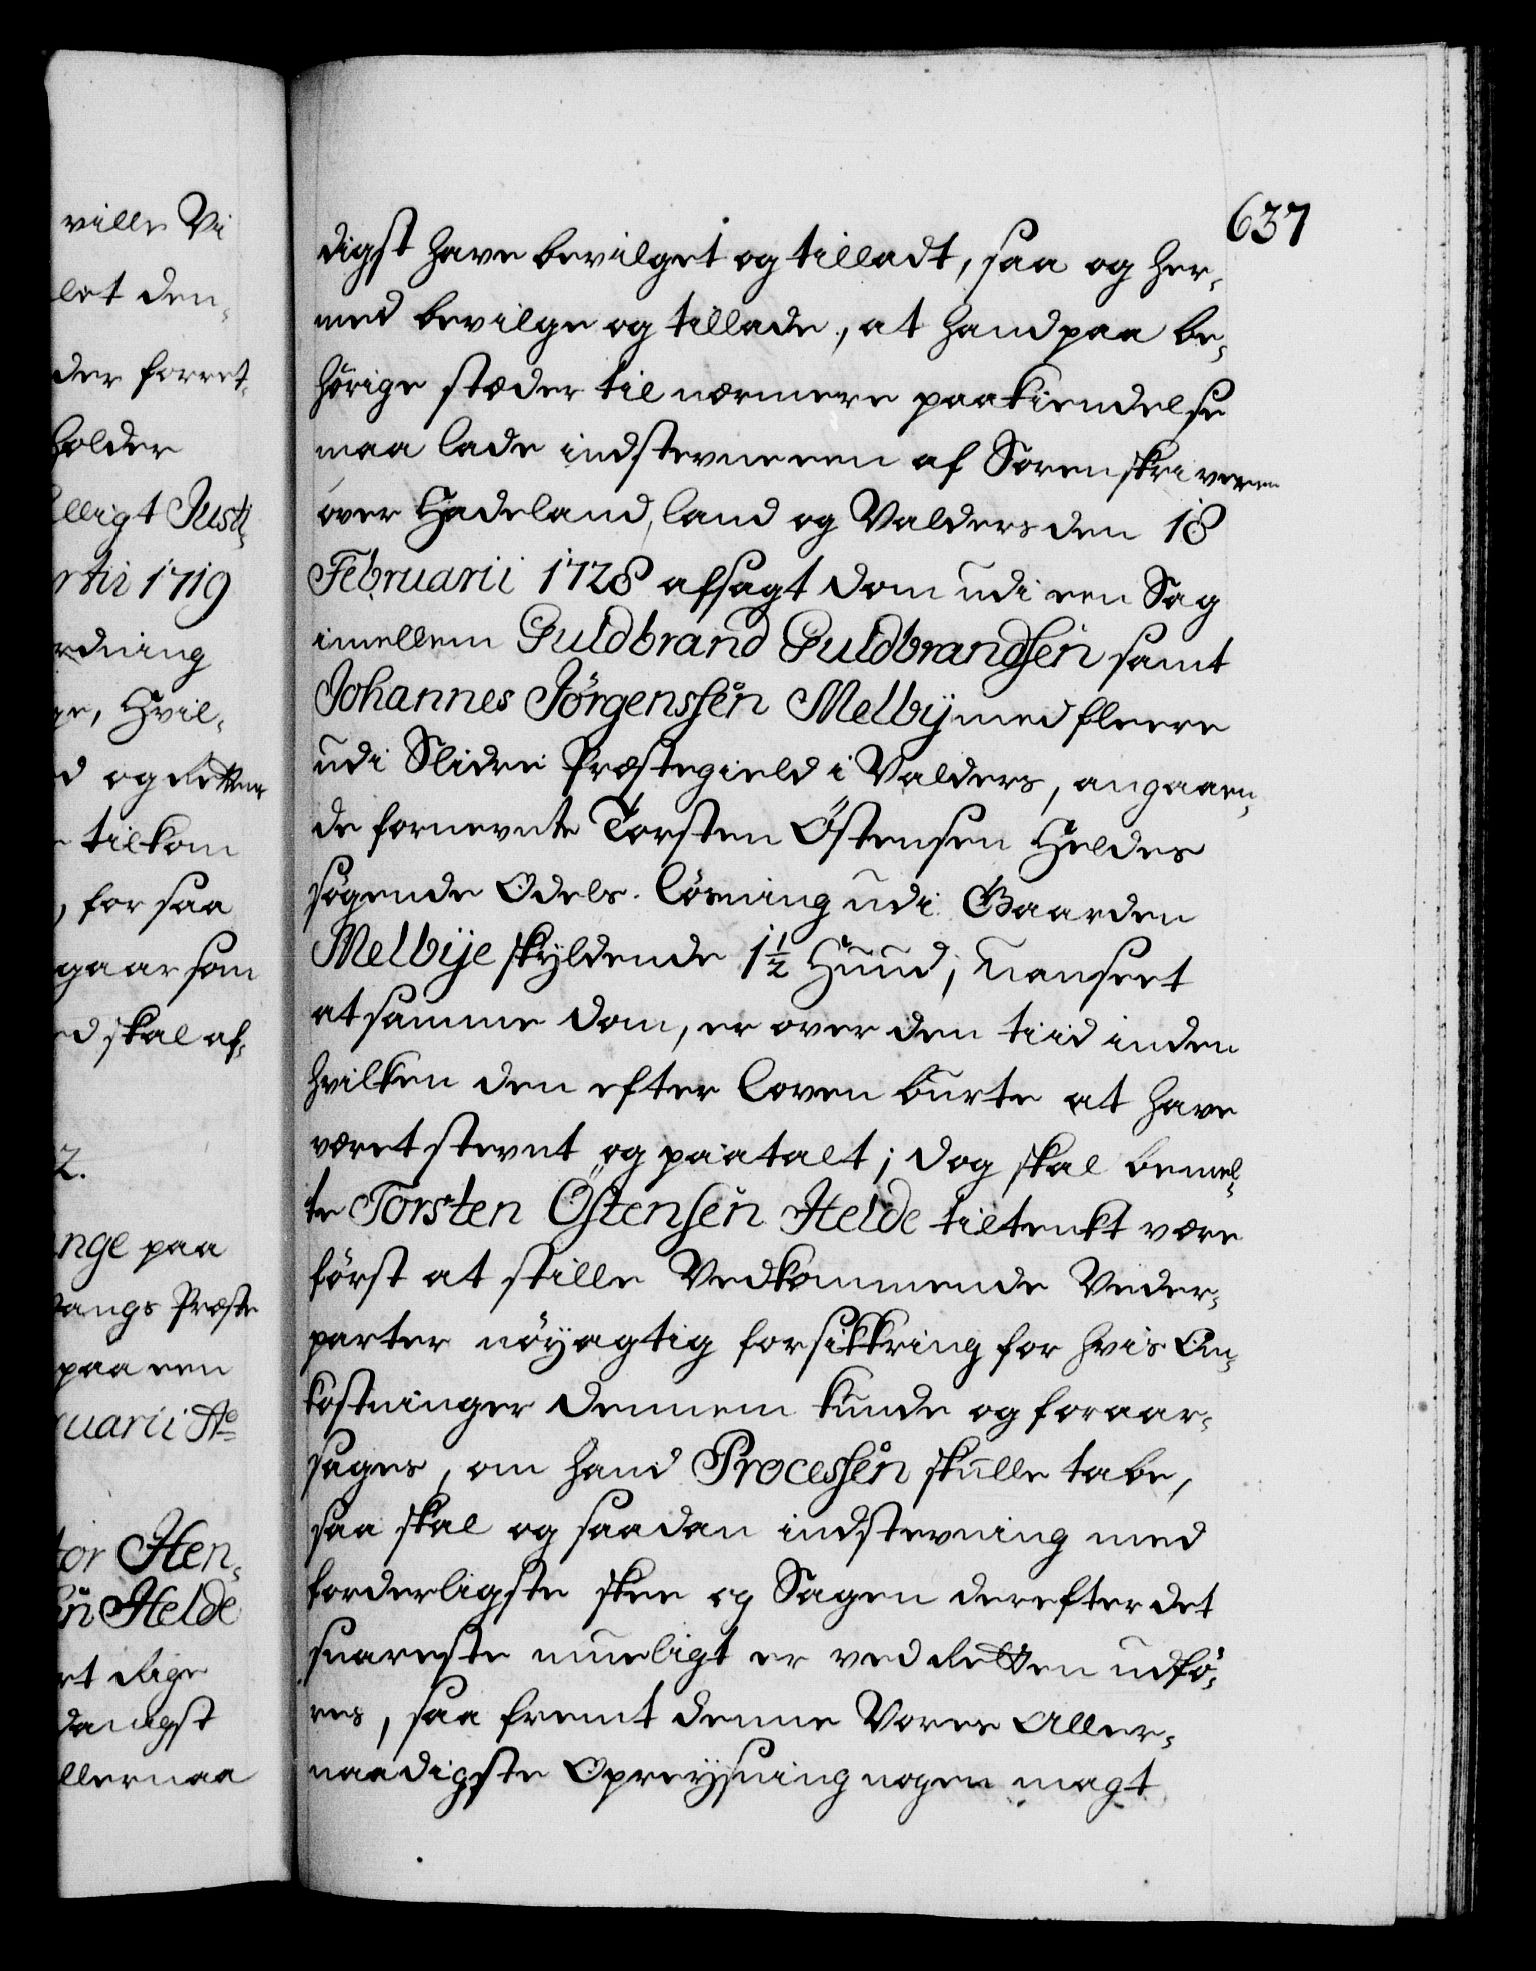 ville Vi
let den,
der forret,
holder
lligt Justi,
rtii 1719
rdning
ge, Hvil,
d og Retten
tilkom
, for saa
gaar som
ed skal af,
2.
nge paa
Vangs Præste
paa een
ruarii Aº
tor Hen,
en Helde
et Rige
danigst
llernaa
637
digst have bevilget og tilladt, saa og her,
med bevilge og tillade, at hand paa be,
hörige stæder til nærmere paakiendelse
maa lade indstevne een af Sorenskriveren
over Hadeland, Land og Valders den 18
Februarii 1728 afsagt Dom udi een Sag
imellem Guldbrand Guldbrandsen samt
Johannes Jörgenssen Melbÿ med fleere
udi Slidre Præstegield i Valders, angaaen,
de fornevnte Torsten Östensen Heldes
sögende Odels-lösning udi Gaarden
Melbÿe skyldende 1½ Hund; uanseet
at samme Dom, er over den tiid inden
hvilken den efter Loven burte at have
været stevnt og paatalt; dog skal bemel,
te Torsten Östensen Helde tiltenkt være
först at stille Vedkommende Veder,
parter nöyagtig forsikkring for hvis Om,
kostninger dennem kunde og foraar,
sages, om hand Processen skulle tabe,
saa skal og saadan indstevning med
forderligste skee og Sagen derefter det
snareste mueligt er ved Retten udfö,
res, saa fremt denne Vores Aller,
naadigste Opreysning nogen magt